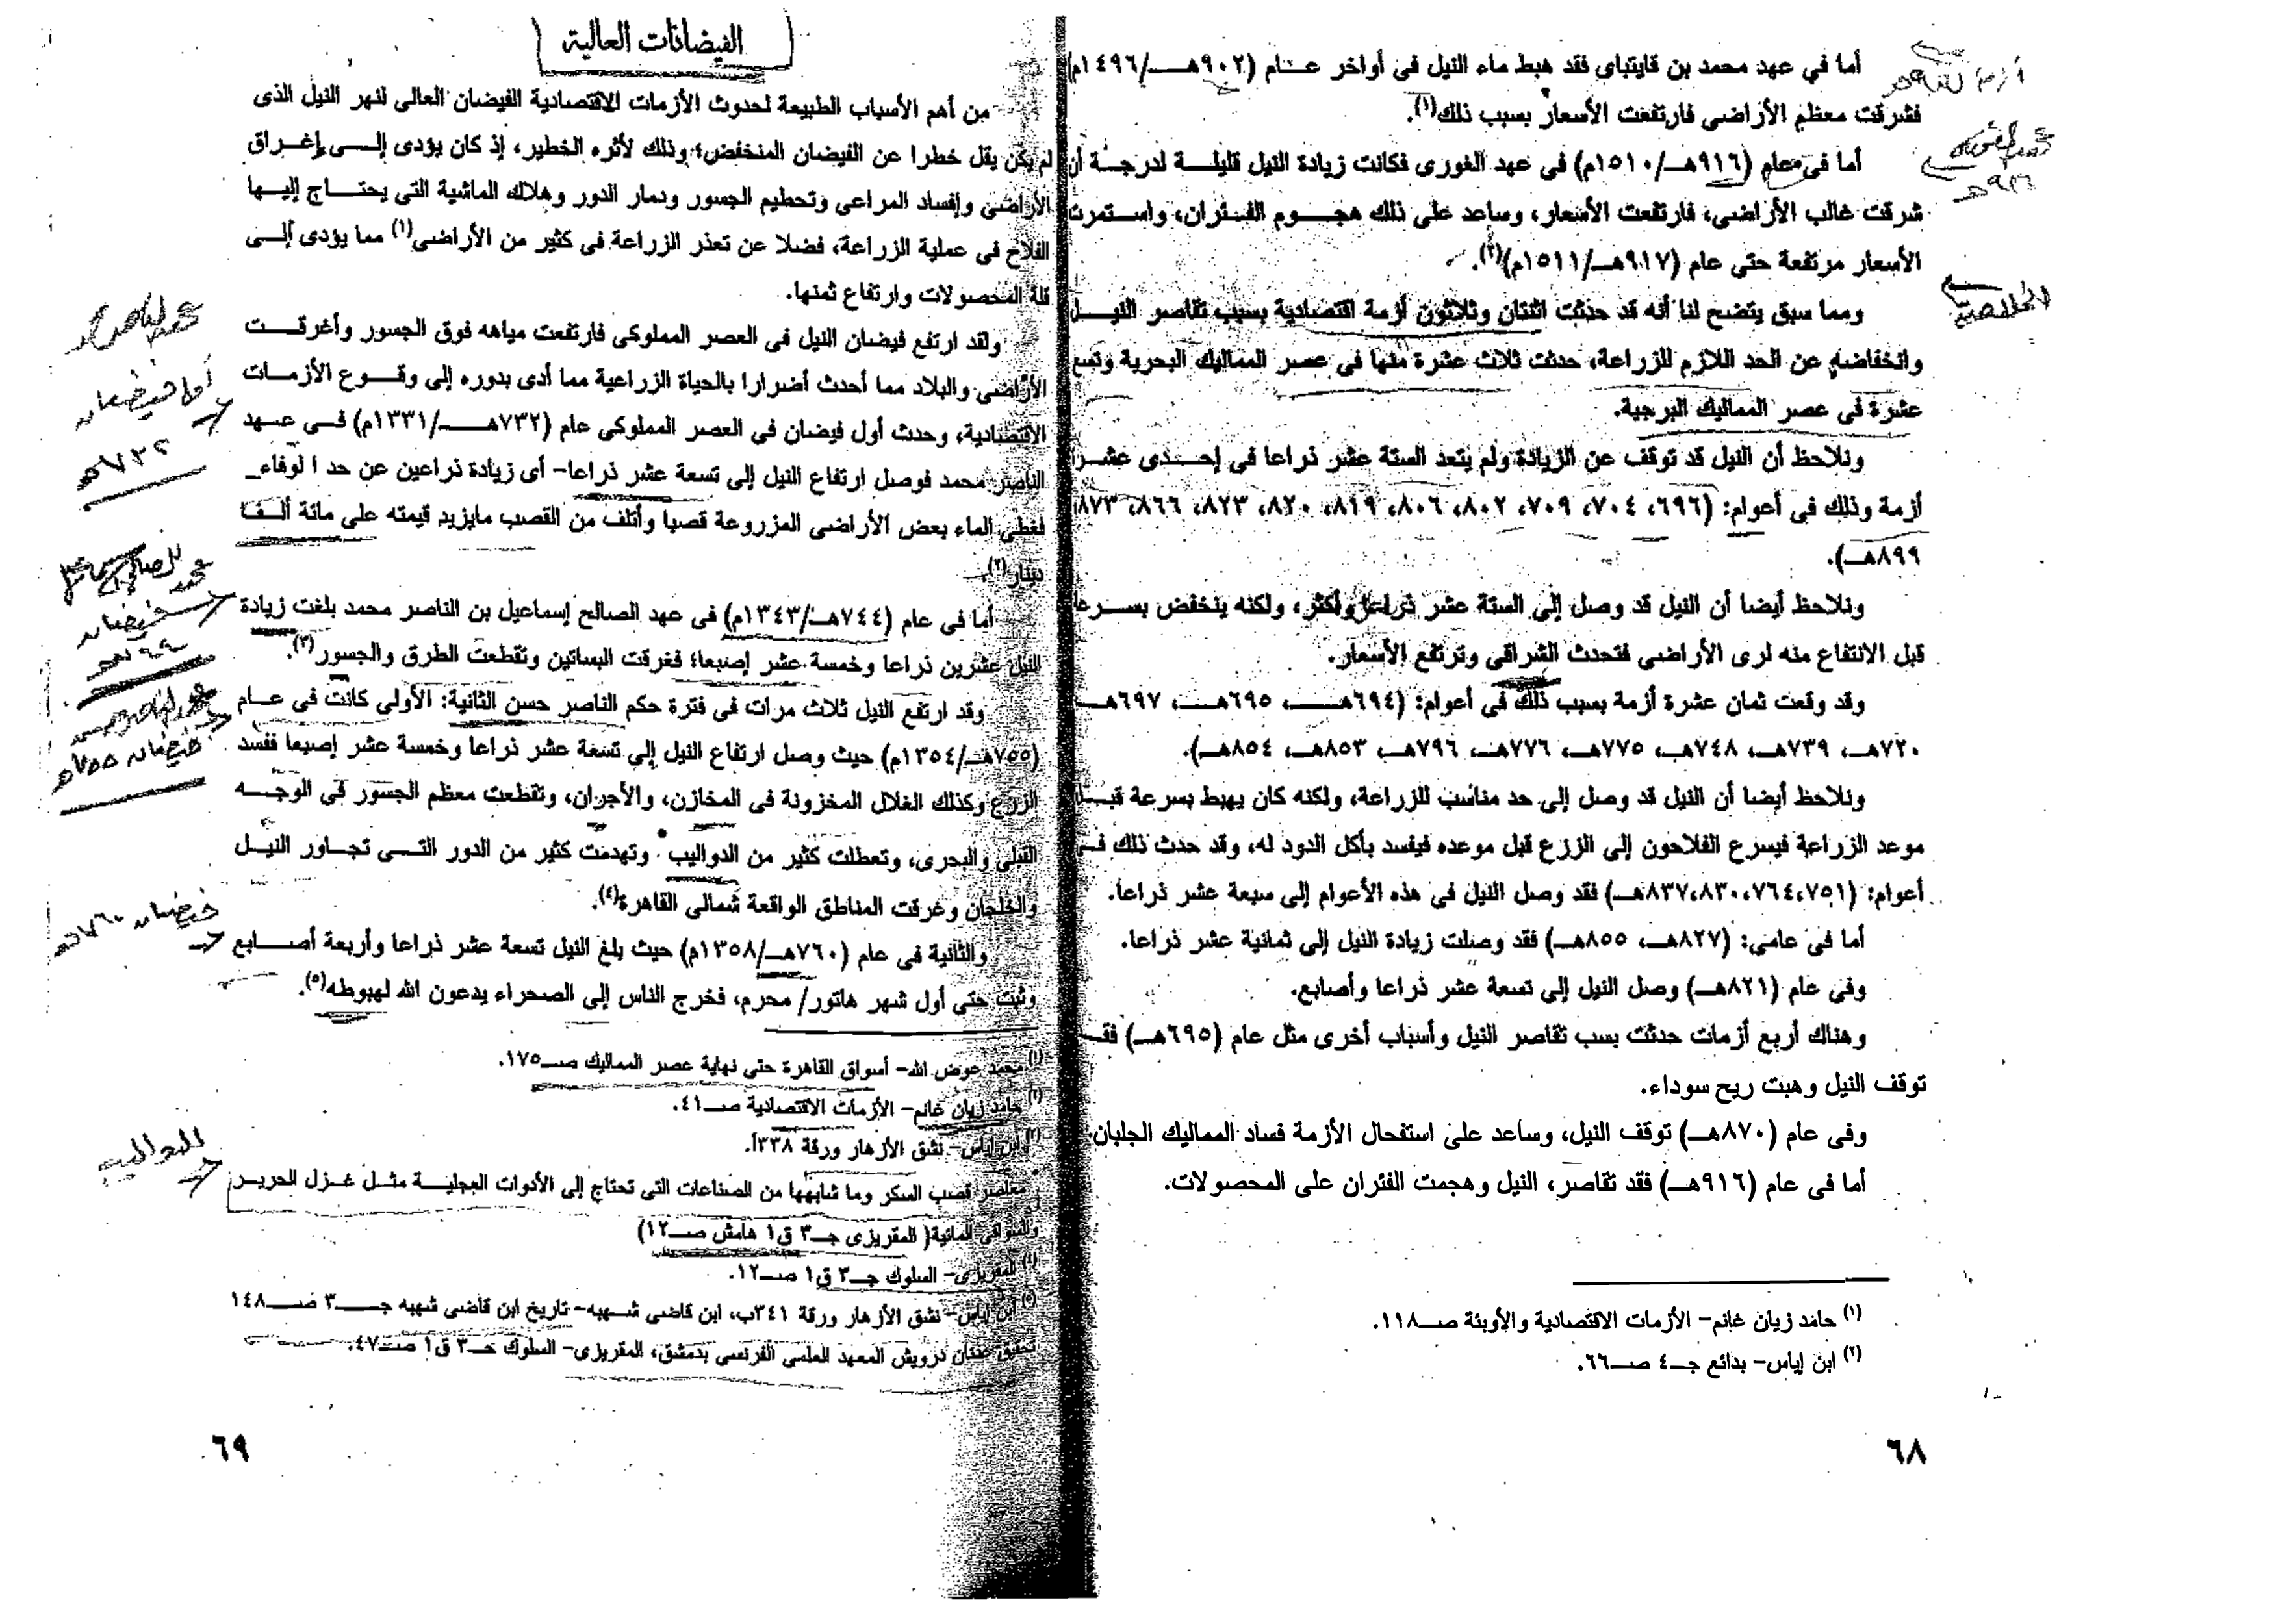 أما في عهد محمد بن قايتباى فقد هبط ماء النيل فى أواخر عـــام (٩٠٢هــــ/١٤٩٦م)
فشرقت معظم الأراضى فارتفعت الأسعار بسبب ذلك(١).
أما فى عام (٩١٦هـــ/١٥١٠م) فى عهد الغورى فكانت زيادة النيل قليلـــة لدرجـة أن
شرقت غالب الأراضى، فارتفعت الأسعار، وساعد على ذلك هجـــوم الفئران، واستمرت
الأسعار مرتفعة حتى عام (٩١٧هـــ/١٥١١م)(٢).
ومما سبق يتضح لنا أنه قد حدثت اثنتان وثلاثون أزمة اقتصادية بسبب تقاصر النيـــل
وانخفاضه عن الحد اللازم للزراعة، حدثت ثلاث عشرة منها فى عصر المماليك البحرية وتسع
عشرة فى عصر المماليك البرجية.
ونلاحظ أن النيل قد توقف عن الزيادة ولم يتعد الستة عشر ذراعا فى إحـــدى عشـر
أزمة وذلك فى أعوام: (٦٩٦، ٧٠٤، ٧٠٩، ٨٠٢، ٨٠٦، ٨١٩، ٨٢٠، ٨٢٣، ٨٦٦، ٨٧٣
٨٩٩هـــ).
ونلاحظ أيضا أن النيل قد وصل إلى الستة عشر ذراعا وأكثر، ولكنه ينخفض بســرعة
قبل الانتفاع منه لرى الأراضى فتحدث الشراقى وترتفع الأسعار.
وقد وقعت ثمان عشرة أزمة بسبب ذلك فى أعوام: (٦٩٤هــــ، ٦٩٥هـــ، ٦٩٧هـــ
٧٢٠هـــ، ٧٣٩هـــ، ٧٤٨هـــ، ٧٧٥هـــ، ٧٧٦هـــ، ٧٩٦هـــ، ٨٥٣هـــ، ٨٥٤هـــ).
ونلاحظ أيضا أن النيل قد وصل إلى حد مناسب للزراعة، ولكنه كان يهبط بسرعة قبـل
موعد الزراعة فيسرع الفلاحون إلى الزرع قبل موعده فيفسد بأكل الدود له، وقد حدث ذلك فـى
أعوام: (٧٥١،٧٦٤،٨٣٠،٨٣٧هـــ) فقد وصل النيل فى هذه الأعوام إلى سبعة عشر ذراعا.
أما فى عامى: (٨٢٧هـــ، ٨٥٥هـــ) فقد وصلت زيادة النيل إلى ثمانية عشر ذراعا.
وفى عام (٨٢١هـــ) وصل النيل إلى تسعة عشر ذراعا وأصابع.
وهناك أربع أزمات حدثت بسب تقاصر النيل وأسباب أخرى مثل عام (٦٩٥هـــ) فقـد
توقف النيل وهبت ريح سوداء.
وفى عام (٨٧٠هـــ) توقف النيل، وساعد على استفحال الأزمة فساد المماليك الجلبان.
أما فى عام (٩١٦هـــ) فقد تقاصر، النيل وهجمت الفئران على المحصولات.
(١) حامد زيان غانم- الأزمات الاقتصادية والأوبئة صـــ١١٨.
(٢) ابن إياس- بدائع جـــ٤ صـــ٦٦.
٦٨
محمد الغورى
٩١٦هـ
الخلاصة
الفيضانات العالية
من أهم الأسباب الطبيعة لحدوث الأزمات الاقتصادية الفيضان العالى لنهر النيل الذى
لم يكن يقل خطرا عن الفيضان المنخفض؛ وذلك لأثره الخطير، إذ كان يؤدى إلـــى إغـراق
الأراضى وإفساد المراعى وتحطيم الجسور ودمار الدور وهلاك الماشية التى يحتـــاج إليـــها
الفلاح فى عملية الزراعة، فضلا عن تعذر الزراعة فى كثير من الأراضى(١) مما يؤدى إلـى
قلة المحصولات وارتفاع ثمنها.
ولقد ارتفع فيضان النيل فى العصر المملوكى فارتفعت مياهه فوق الجسور وأغرقـــت
الأراضى والبلاد مما أحدث أضرارا بالحياة الزراعية مما أدى بدوره إلى وقـــوع الأزمـــات
الاقتصادية، وحدث أول فيضان فى العصر المملوكى عام (٧٣٢هــــ/١٣٣١م) فـى عـهد
الناصر محمد فوصل ارتفاع النيل إلى تسعة عشر ذراعا- أى زيادة ذراعين عن حد الوفاء_
فغطى الماء بعض الأراضى المزروعة قصبا وأتلف من القصب مايزيد قيمته على مائة ألـف
دينار(٢).
أما فى عام (٧٤٤هـــ/١٣٤٣م) فى عهد الصالح إسماعيل بن الناصر محمد بلغت زيادة
النيل عشرين ذراعا وخمسة عشر إصبعا؛ فغرقت البساتين وتقطعت الطرق والجسور(٣).
وقد ارتفع النيل ثلاث مرات فى فترة حكم الناصر حسن الثانية: الأولى كانت فى عـام
(٧٥٥هـــ/١٣٥٤م) حيث وصل ارتفاع النيل إلى تسعة عشر ذراعا وخمسة عشر إصبعا ففسد
الزرع وكذلك الغلال المخزونة فى المخازن، والأجران، وتقطعت معظم الجسور فى الوجـــه
القبلى والبحرى، وتعطلت كثير من الدواليب* وتهدمت كثير من الدور التـــى تجـاور النيـل
والخلجان وغرقت المناطق الواقعة شمالى القاهرة(٤).
والثانية فى عام (٧٦٠هـــ/١٣٥٨م) حيث بلغ النيل تسعة عشر ذراعا وأربعة أصـــابع
وثبت حتى أول شهر هاتور/ محرم، فخرج الناس إلى الصحراء يدعون الله لهبوطه(٥).
(١) محمد عوض الله- أسواق القاهرة حتى نهاية عصر المماليك صـــ١٧٥.
(٢) حامد زيان غانم- الأزمات الاقتصادية صـــ٤١.
(٣) ابن إياس- نشق الأزهار ورقة ٣٣٨أ.
* معاصر قصب السكر وما شابهها من الصناعات التى تحتاج إلى الأدوات العجليـــة مثـل غـزل الحريـر
والسواقى المائية( المقريزى جـــ٣ ق١ هامش صـــ١٢)
(٤) المقريزى- السلوك جـــ٣ ق١ صـــ١٢.
(٥) ابن إياس- نشق الأزهار ورقة ٣٤١ب، ابن قاضى شـهبه- تاريخ ابن قاضى شهبه جــــ٣ صـــ١٤٨
تحقيق عدنان درويش المعهد العلمى الفرنسى بدمشق، المقريزى- السلوك جـــ٣ ق١ صـــ٤٧.
٦٩
محمد الناصر
فيضان
٧٣٢هـ
فيضان
فيضان ٧٥٥هـ
فيضان ٧٦٠هـ
الدواليب